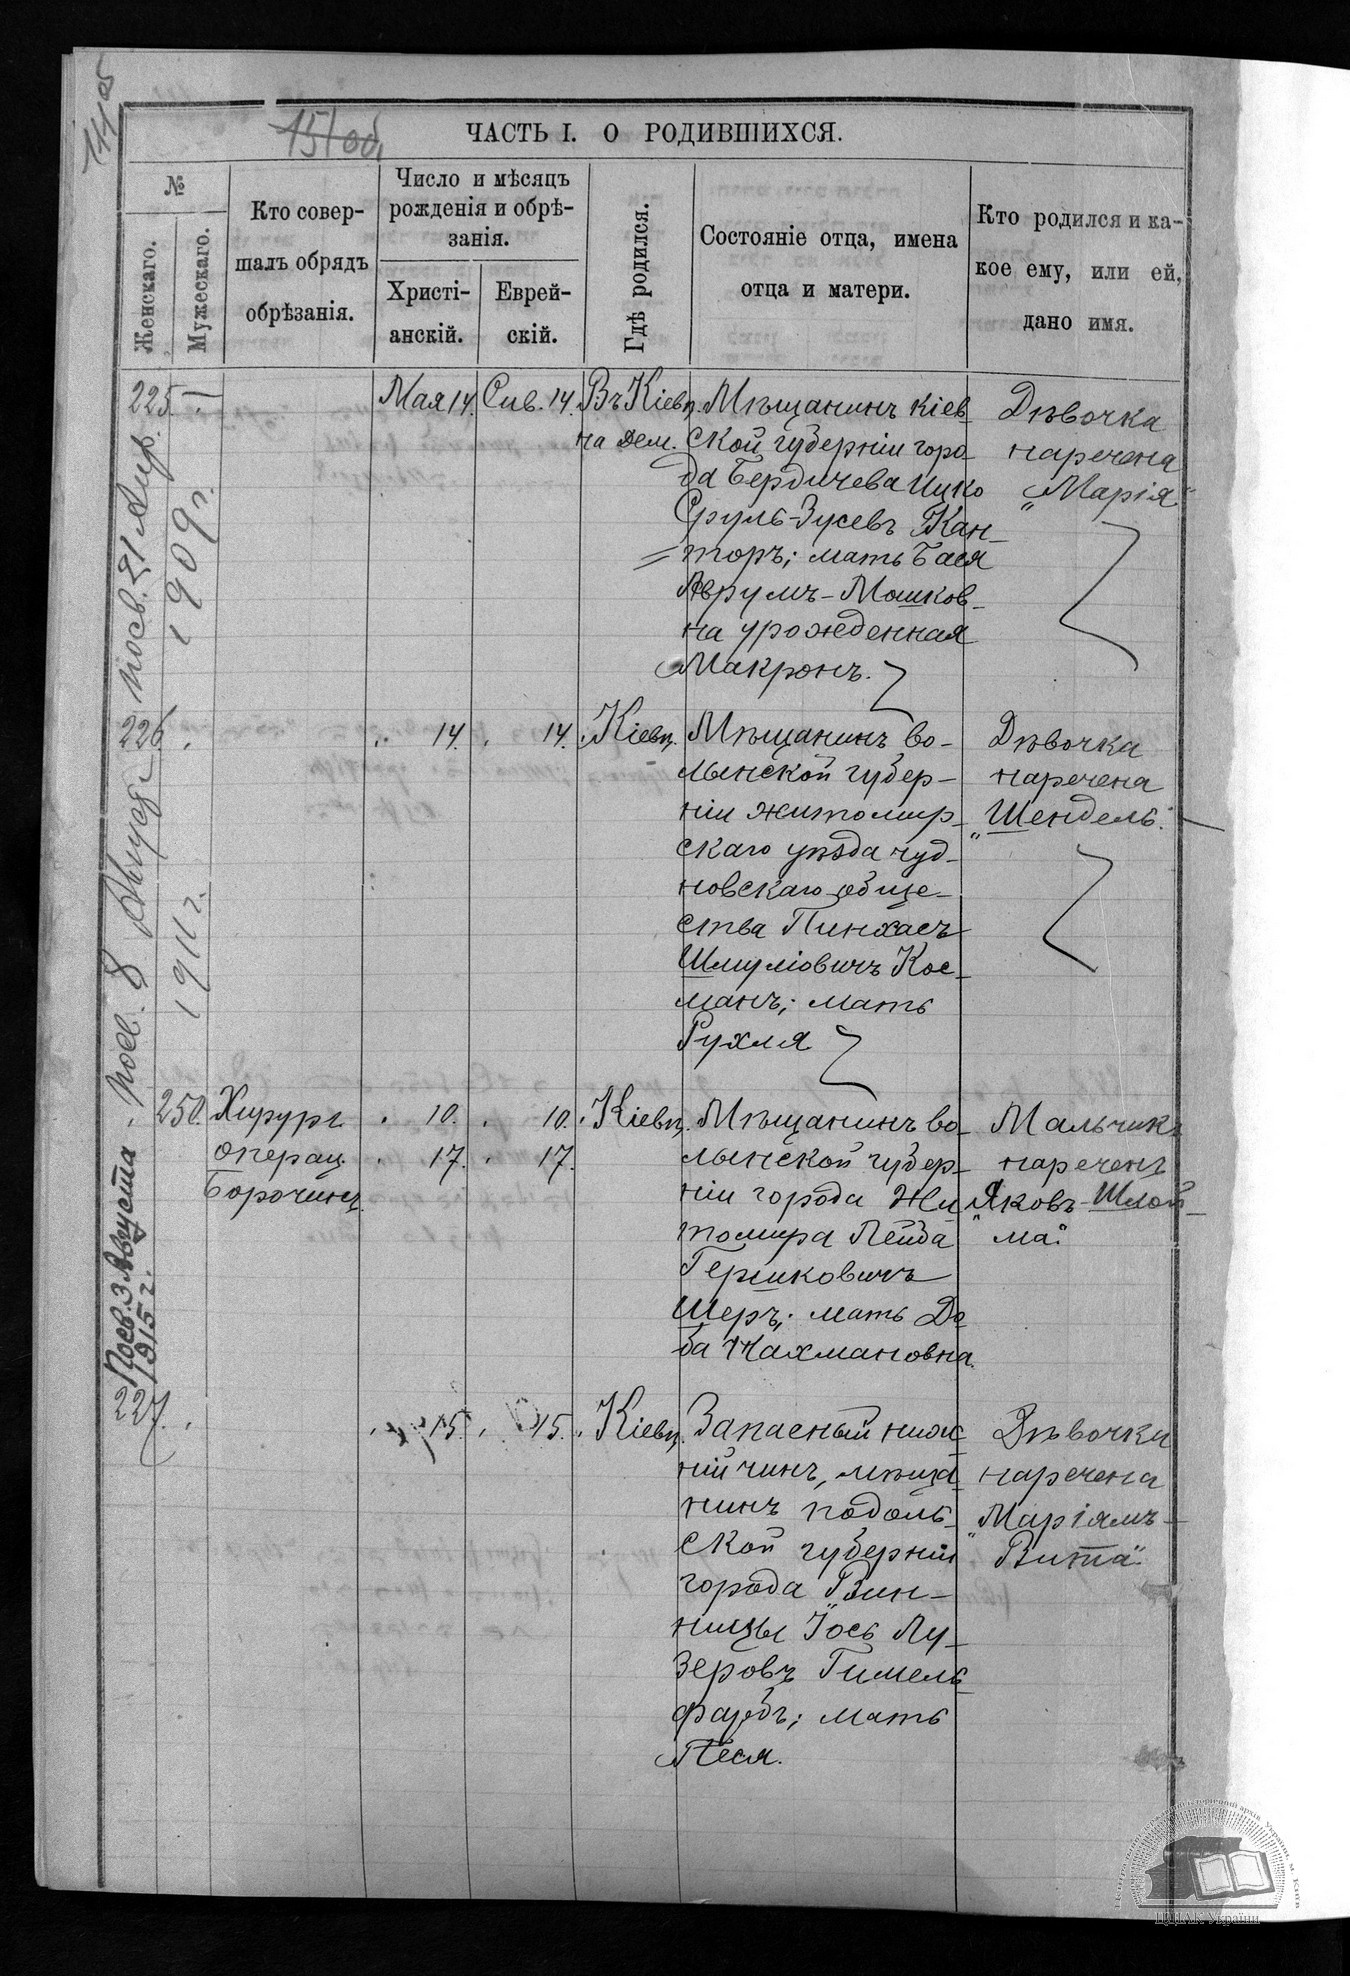 151 об.
ЧАСТЬ I. О РОДИВШИХСЯ.
№
Женскаго.
Мужескаго.
Кто совер-
шалъ обрядъ
обрѣзанія.
Число и мѣсяцъ
рожденія и обрѣ-
занія.
Христі-
анскій.
Еврей-
скій.
Гдѣ родился.
Состояніе отца, имена
отца и матери.
Кто родился и ка-
кое ему, или ей,
дано имя.
225.
Мая 14. Сив. 14.
Въ Кіевѣ
на Дем.
Мѣщанинъ Кіев
ской губерніи горо-
да Бердичева Ицко
Сруль-Зусевъ Кан-
торъ; мать Бася
Аврумъ-Мошков-
на урожденная
Макронъ.
Дѣвочка
наречена
„Марія“
226.
14. 14. Кіевѣ.
Мѣщанинъ во-
лынской губер-
ніи житомир-
скаго уѣзда чуд-
новскаго обще-
ства Пинхасъ
Шмуліовичъ Кос-
манъ; мать
Рухля
Дѣвочка
наречена
„Шендель“.
250. Хирургъ
операц.
10. 10. Кіевѣ.
17. 17.
Мѣщанинъ во-
лынской губер-
ніи города Жи
томира Лейда
Гершковичъ
Шеръ; мать До
ба Нахмановна.
Мальчикъ
нареченъ
„Яковъ-Шлой-
ма“.
227.
15. 15. Кіевѣ.
Запасный ниж
ній чинъ, мѣща
нинъ подоль-
ской губерніи
города Вин-
ницы Іось Лу-
зеровъ Гимель-
фарбъ; мать
Песя.
Дѣвочка
наречена
„Маріямъ-
Вита“.
посв. 21 Апр.
1909 г.
посв. 8 Августа
1911 г.
Посв. 3 Августа
1915 г.
ЦДІАК України